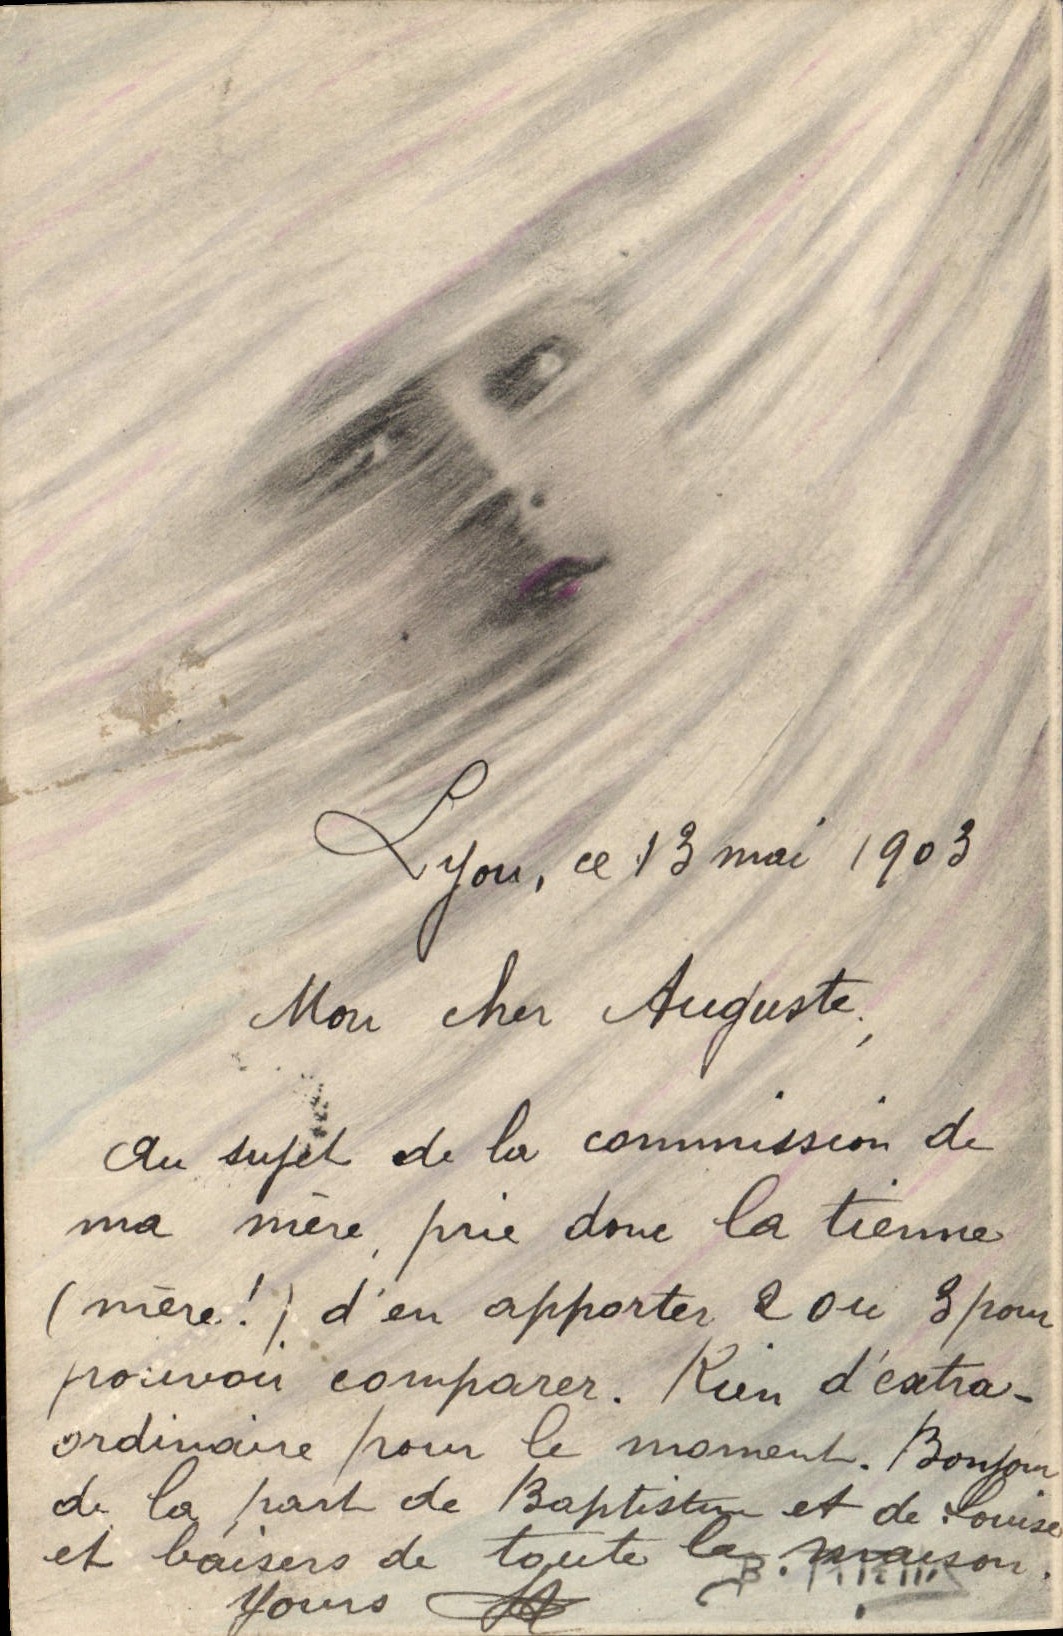 Lyon, ce 13 mai 1903
Mon cher Auguste,
Au sujet de la commission de
ma mère, prie donc la tienne
(mère!) d'en apporter 2 ou 3 pour
pouvoir comparer. Rien d'extra-
ordinaire pour le moment. Bonjour
de la part de Baptistine et de Louise
et baisers de toute la maison.
Yours
B.